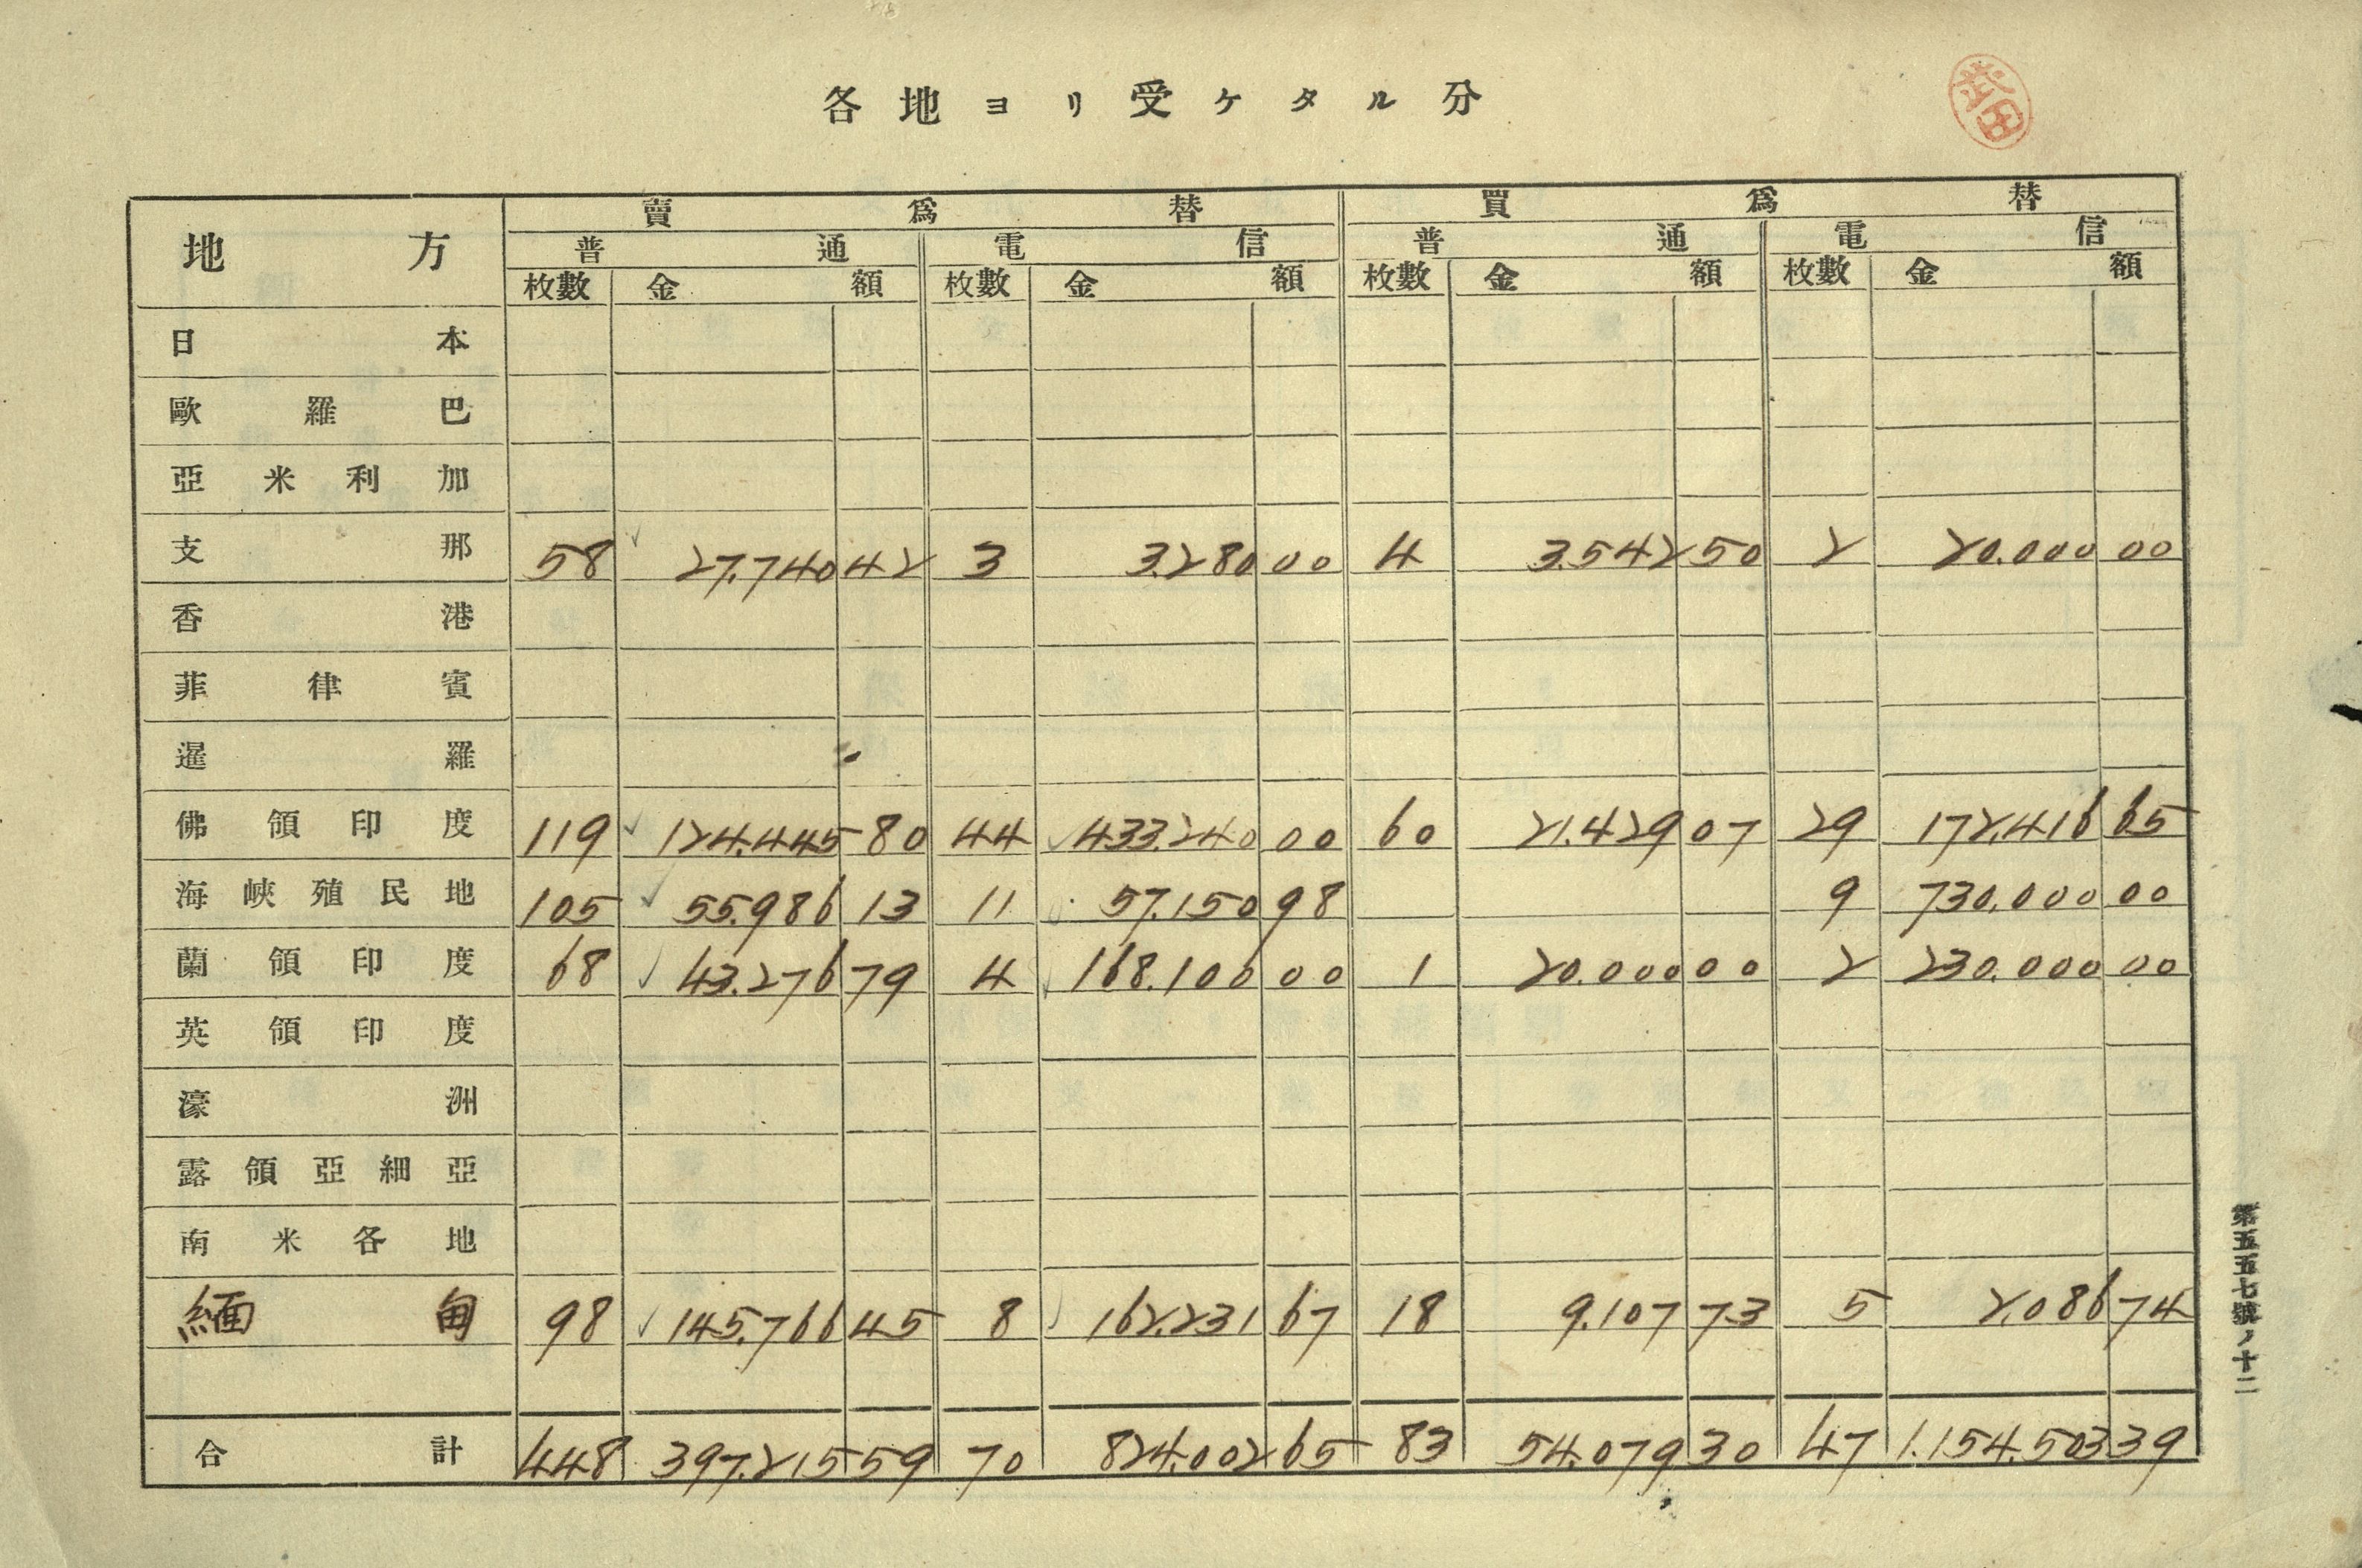 各地ヨリ受ケタル分
武田
地方 賣爲替 買爲替
普通 電信 普通 電信
枚數 金額 枚數 金額 枚數 金額 枚數 金額
日本
歐羅巴
亞米利加
支那 58 27.740 42 3 3.280 00 4 3.542 50 2 20.000 00
香港
菲律賓
暹羅
佛領印度 119 124.445 80 44 433.240 00 60 21.429 07 29 172.416 65
海峽殖民地 105 55.986 13 11 57.150 98 9 730.000 00
蘭領印度 68 43.276 79 4 168.100 00 1 20.000 00 2 230.000 00
英領印度
濠洲
露領亞細亞
南米各地
緬甸 98 145.766 45 8 162.231 67 18 9.107 73 5 2.086 74
合計 448 397.215 59 70 824.002 65 83 54.079 30 47 1.154.503 39
第五五七號ノ十二